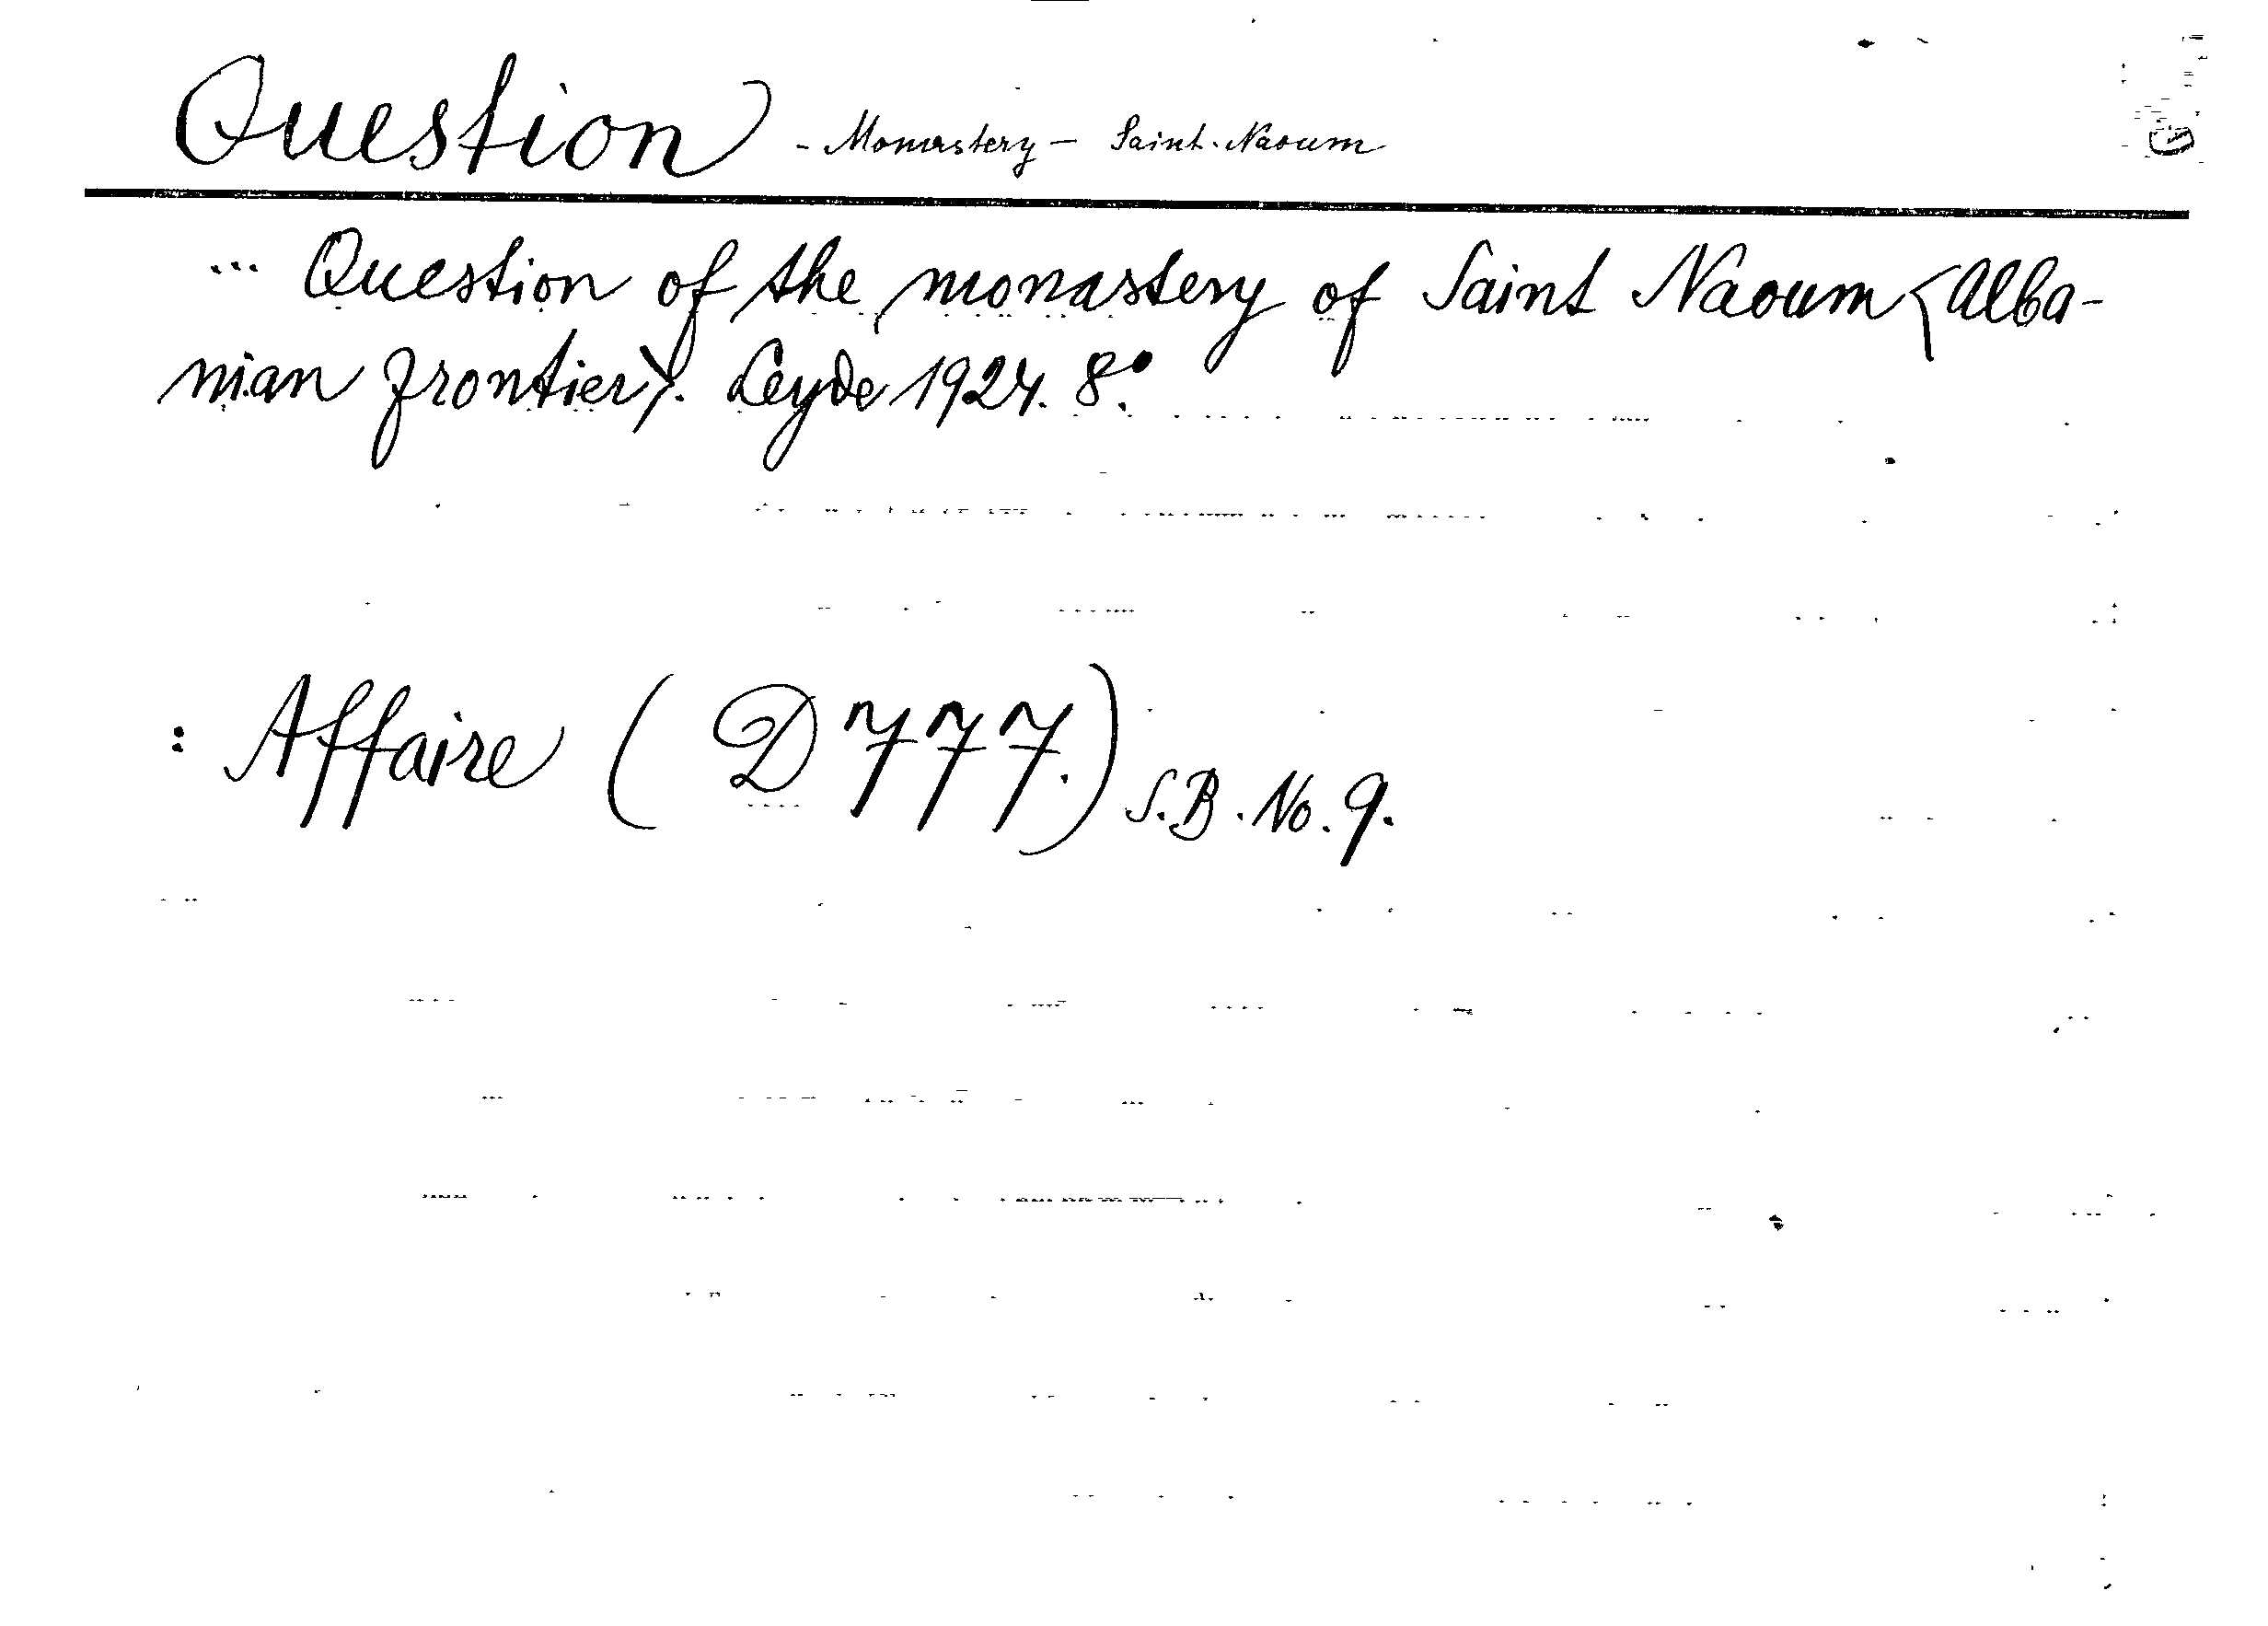 Question - Monastery - Saint-Naoum
... Question of the monastery of Saint Naoum (Alba-
nian frontier). Leyde 1924. 8°.
: Affaire (D 777.) S.B. No. 9.